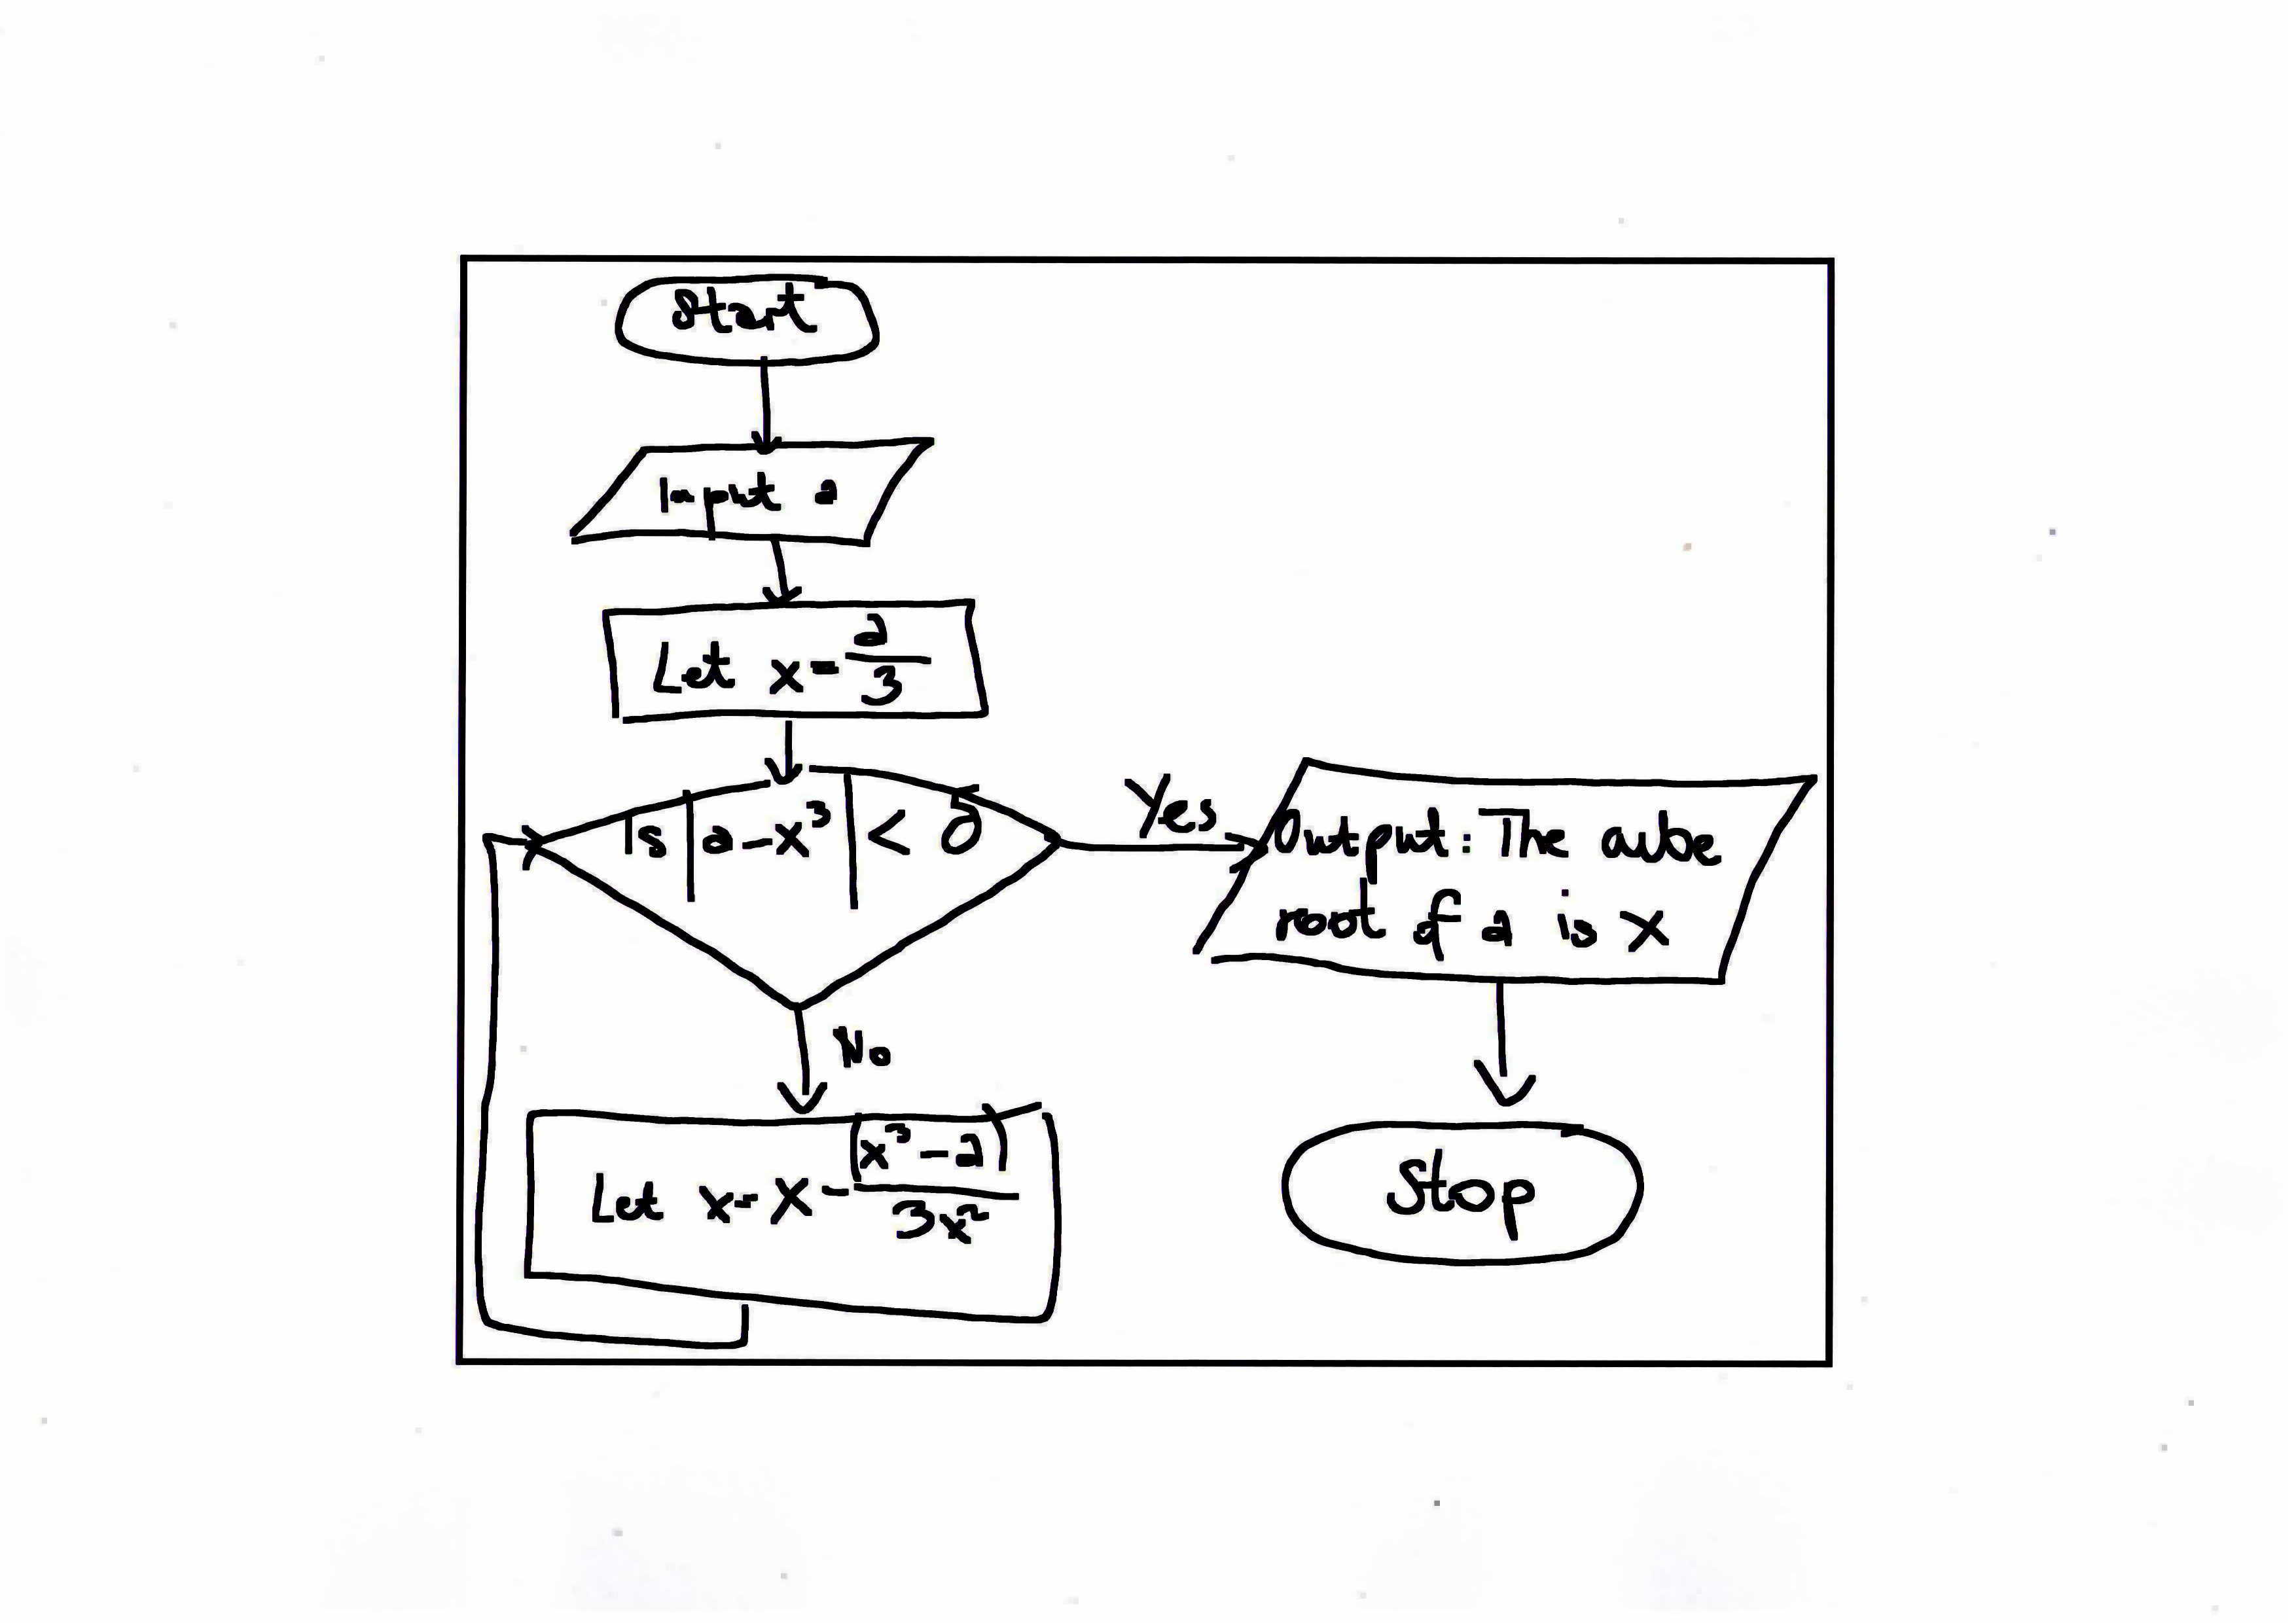 Start
Input a
Let x = a/3
Is |a - x³| < δ
Yes
Output: The cube
root of a is x
No
Let x = x - (x³ - a)/3x²
Stop